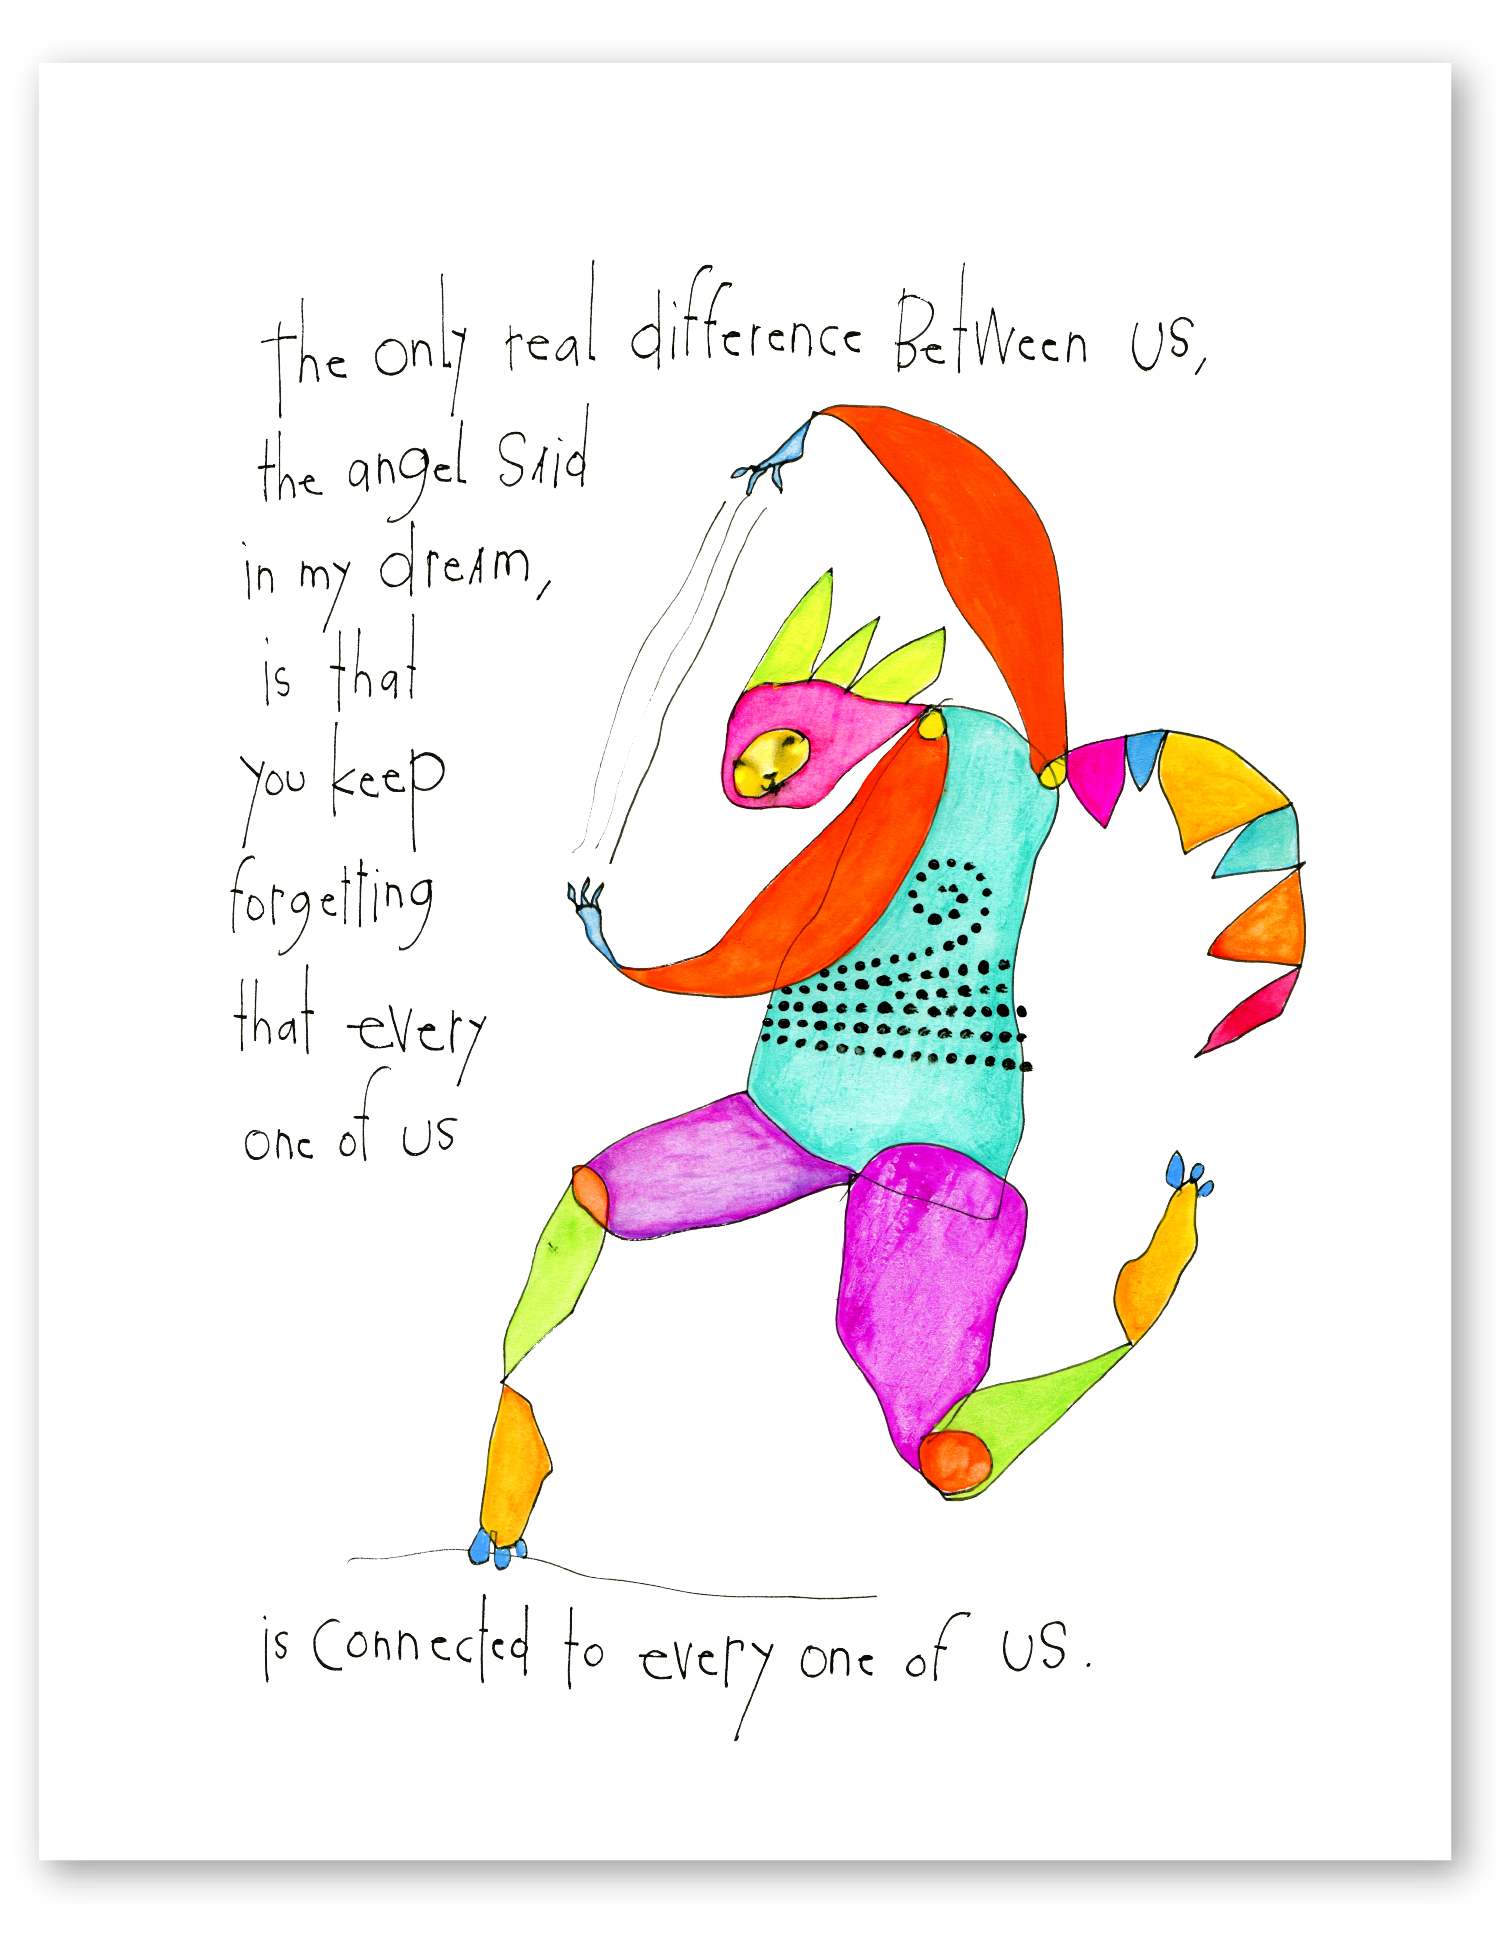 the only real difference BetWeen us,
the angel SAid
in my dreAm,
is that
you keep
forgetting
that every
one of us
is connected to every one of us.